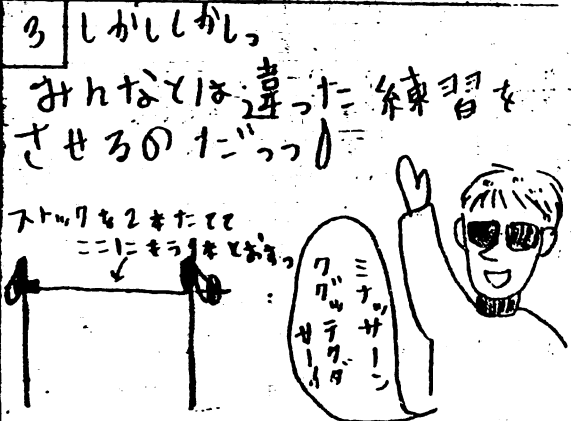 3
しかししかしっ
みんなとは違った練習を
させるのだっっ!
ストックを2本たてて
ここにもう1本とおすっ
ミナサーン
クグッテクダ
サーイ